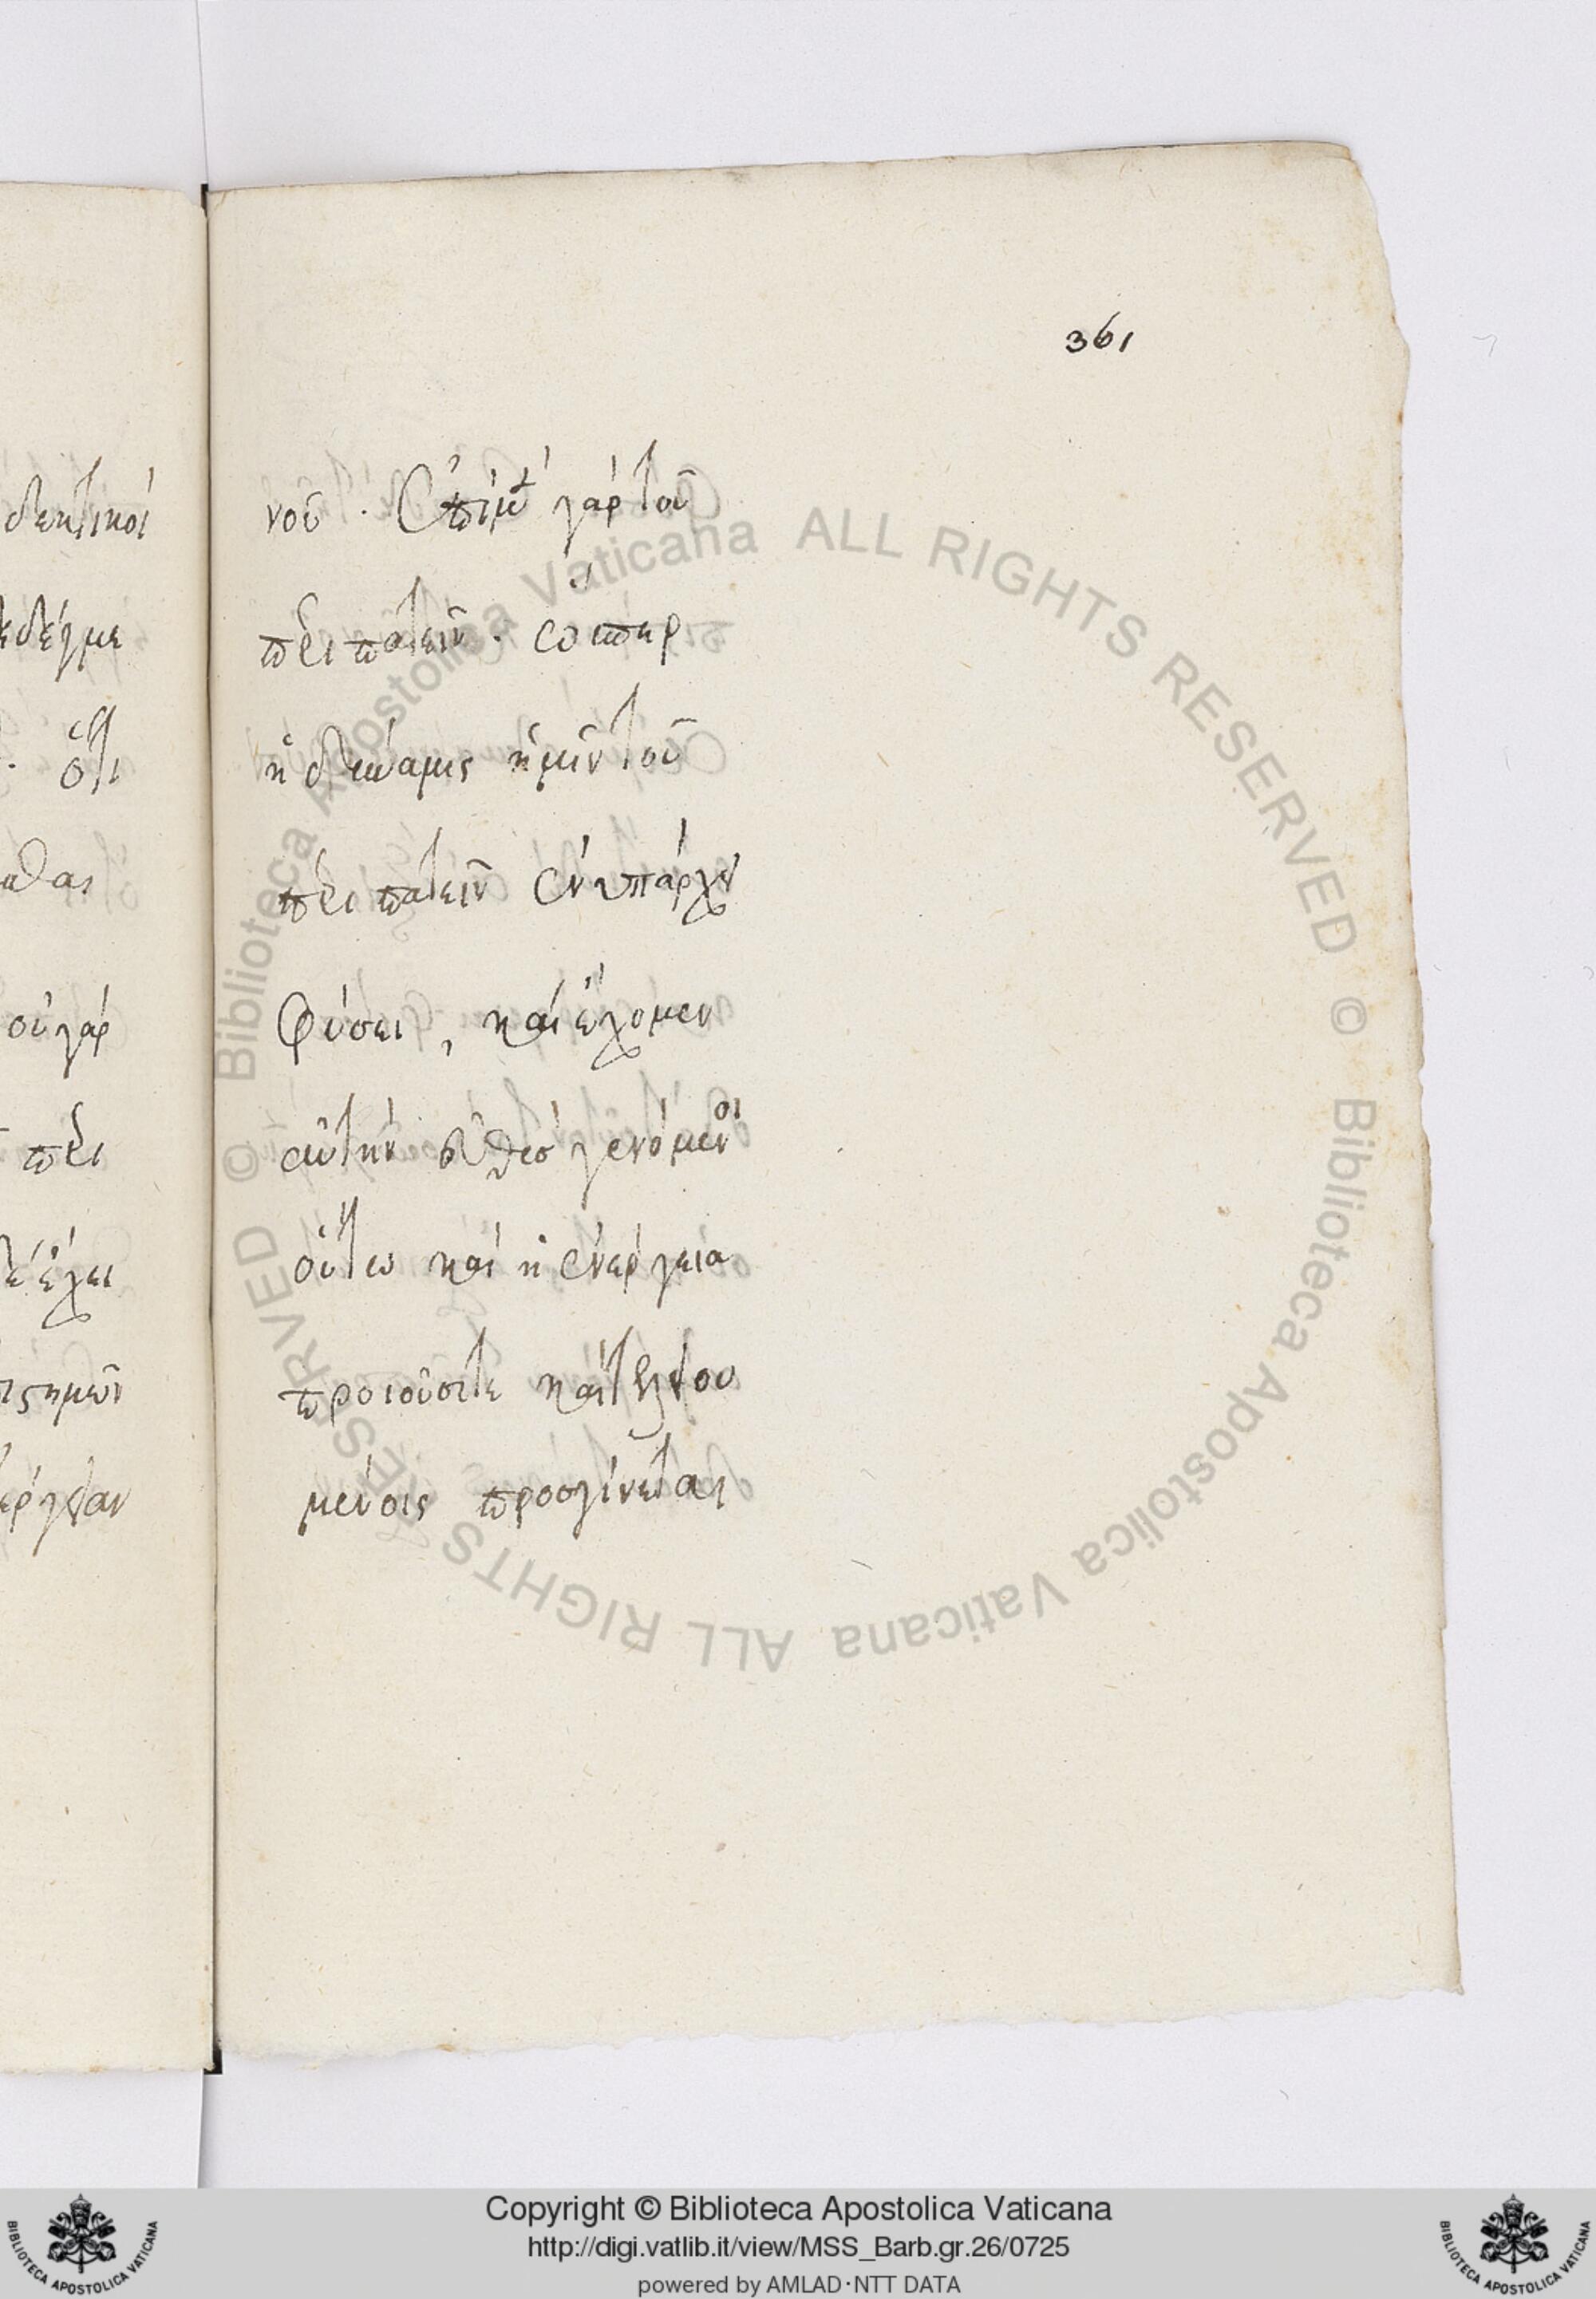 361
δεκτικοί
δεγμε
ὅτι
οὐ γὰρ
περι
έχει
νοῦ · ἐπὶ μὲν γὰρ τοῦ
περιπατεῖν · ὥσπερ
ἡ δύναμις ἡμῖν τοῦ
περιπατεῖν ἐνυπάρχει
φύσει, καὶ ἔχομεν
αὐτὴν εὐθὺς γενόμενοι
οὕτω καὶ ἡ ἐνέργεια
προιοῦσί τε καὶ τελειου
μένοις προσγίνεται
© Biblioteca Apostolica Vaticana ALL RIGHTS RESERVED © Biblioteca Apostolica Vaticana ALL RIGHTS RESERVED
Copyright © Biblioteca Apostolica Vaticana
http://digi.vatlib.it/view/MSS_Barb.gr.26/0725
powered by AMLAD·NTT DATA
BIBLIOTECA APOSTOLICA VATICANA
BIBLIOTECA APOSTOLICA VATICANA